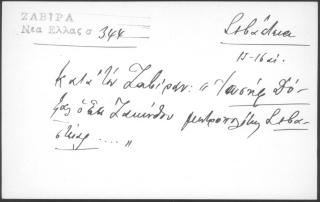 ΖΑΒΙΡΑ
Νεα Ελλας σ 344
Σεβάστεια
15-16 αι.
Κατά τον Ζαβίραν: "Ιωσήφ Δό-
ξας ο εκ Ζακύνθου μητροπολίτης Σεβα-
στείας .... "